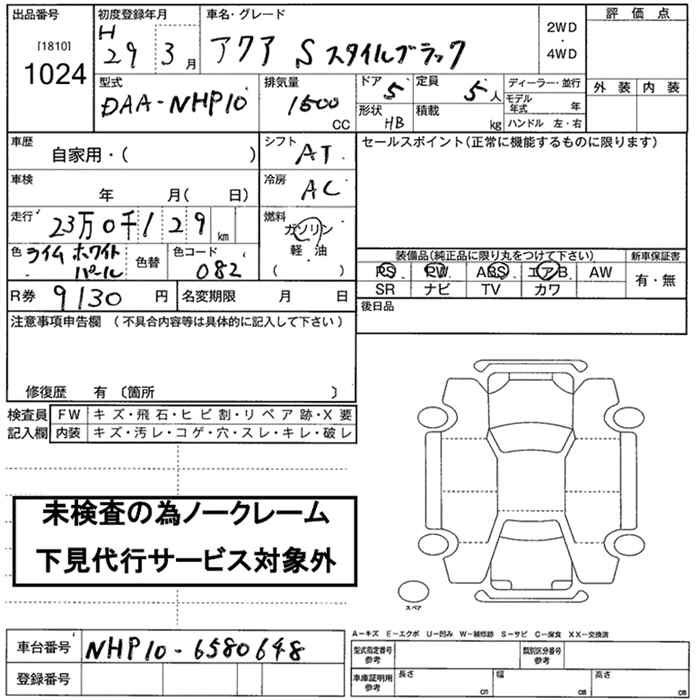 出品番号
[1810]
1024
初度登録年月
H 29 3月
車名・グレード
アクア Sスタイルブラック
2WD
・
4WD
評価点
外装 内装
型式
DAA-NHP10
排気量
1500
CC
ドア 5
形状 HB
定員 5人
積載 kg
ディーラー・並行
モデル年式 年
ハンドル 左・右
車歴
自家用・( )
シフト
AT
セールスポイント(正常に機能するものに限ります)
車検
年 月( 日)
冷房
AC
走行 23万0千129 km
燃料
ガソリン
軽・油
( )
色 ライムホワイトパール
色替
色コード
082
装備品(純正品に限り丸をつけて下さい)
PS PW ABS エアB AW
SR ナビ TV カワ
新車保証書
有・無
R券 9130円
名変期限 月 日
後日品
注意事項申告欄 (不具合内容等は具体的に記入して下さい)
修復歴 有 〔箇所 〕
検査員記入欄
FW キズ・飛石・ヒビ割・リペア跡・X要
内装 キズ・汚レ・コゲ・穴・スレ・キレ・破レ
未検査の為ノークレーム
下見代行サービス対象外
スペア
A-キズ E-エクボ U-凹み W-補修跡 S-サビ C-腐食 XX-交換済
車台番号 NHP10-6580648
登録番号
型式指定番号
参考
類別区分番号
参考
車庫証明用
参考
長さ cm
幅 cm
高さ cm